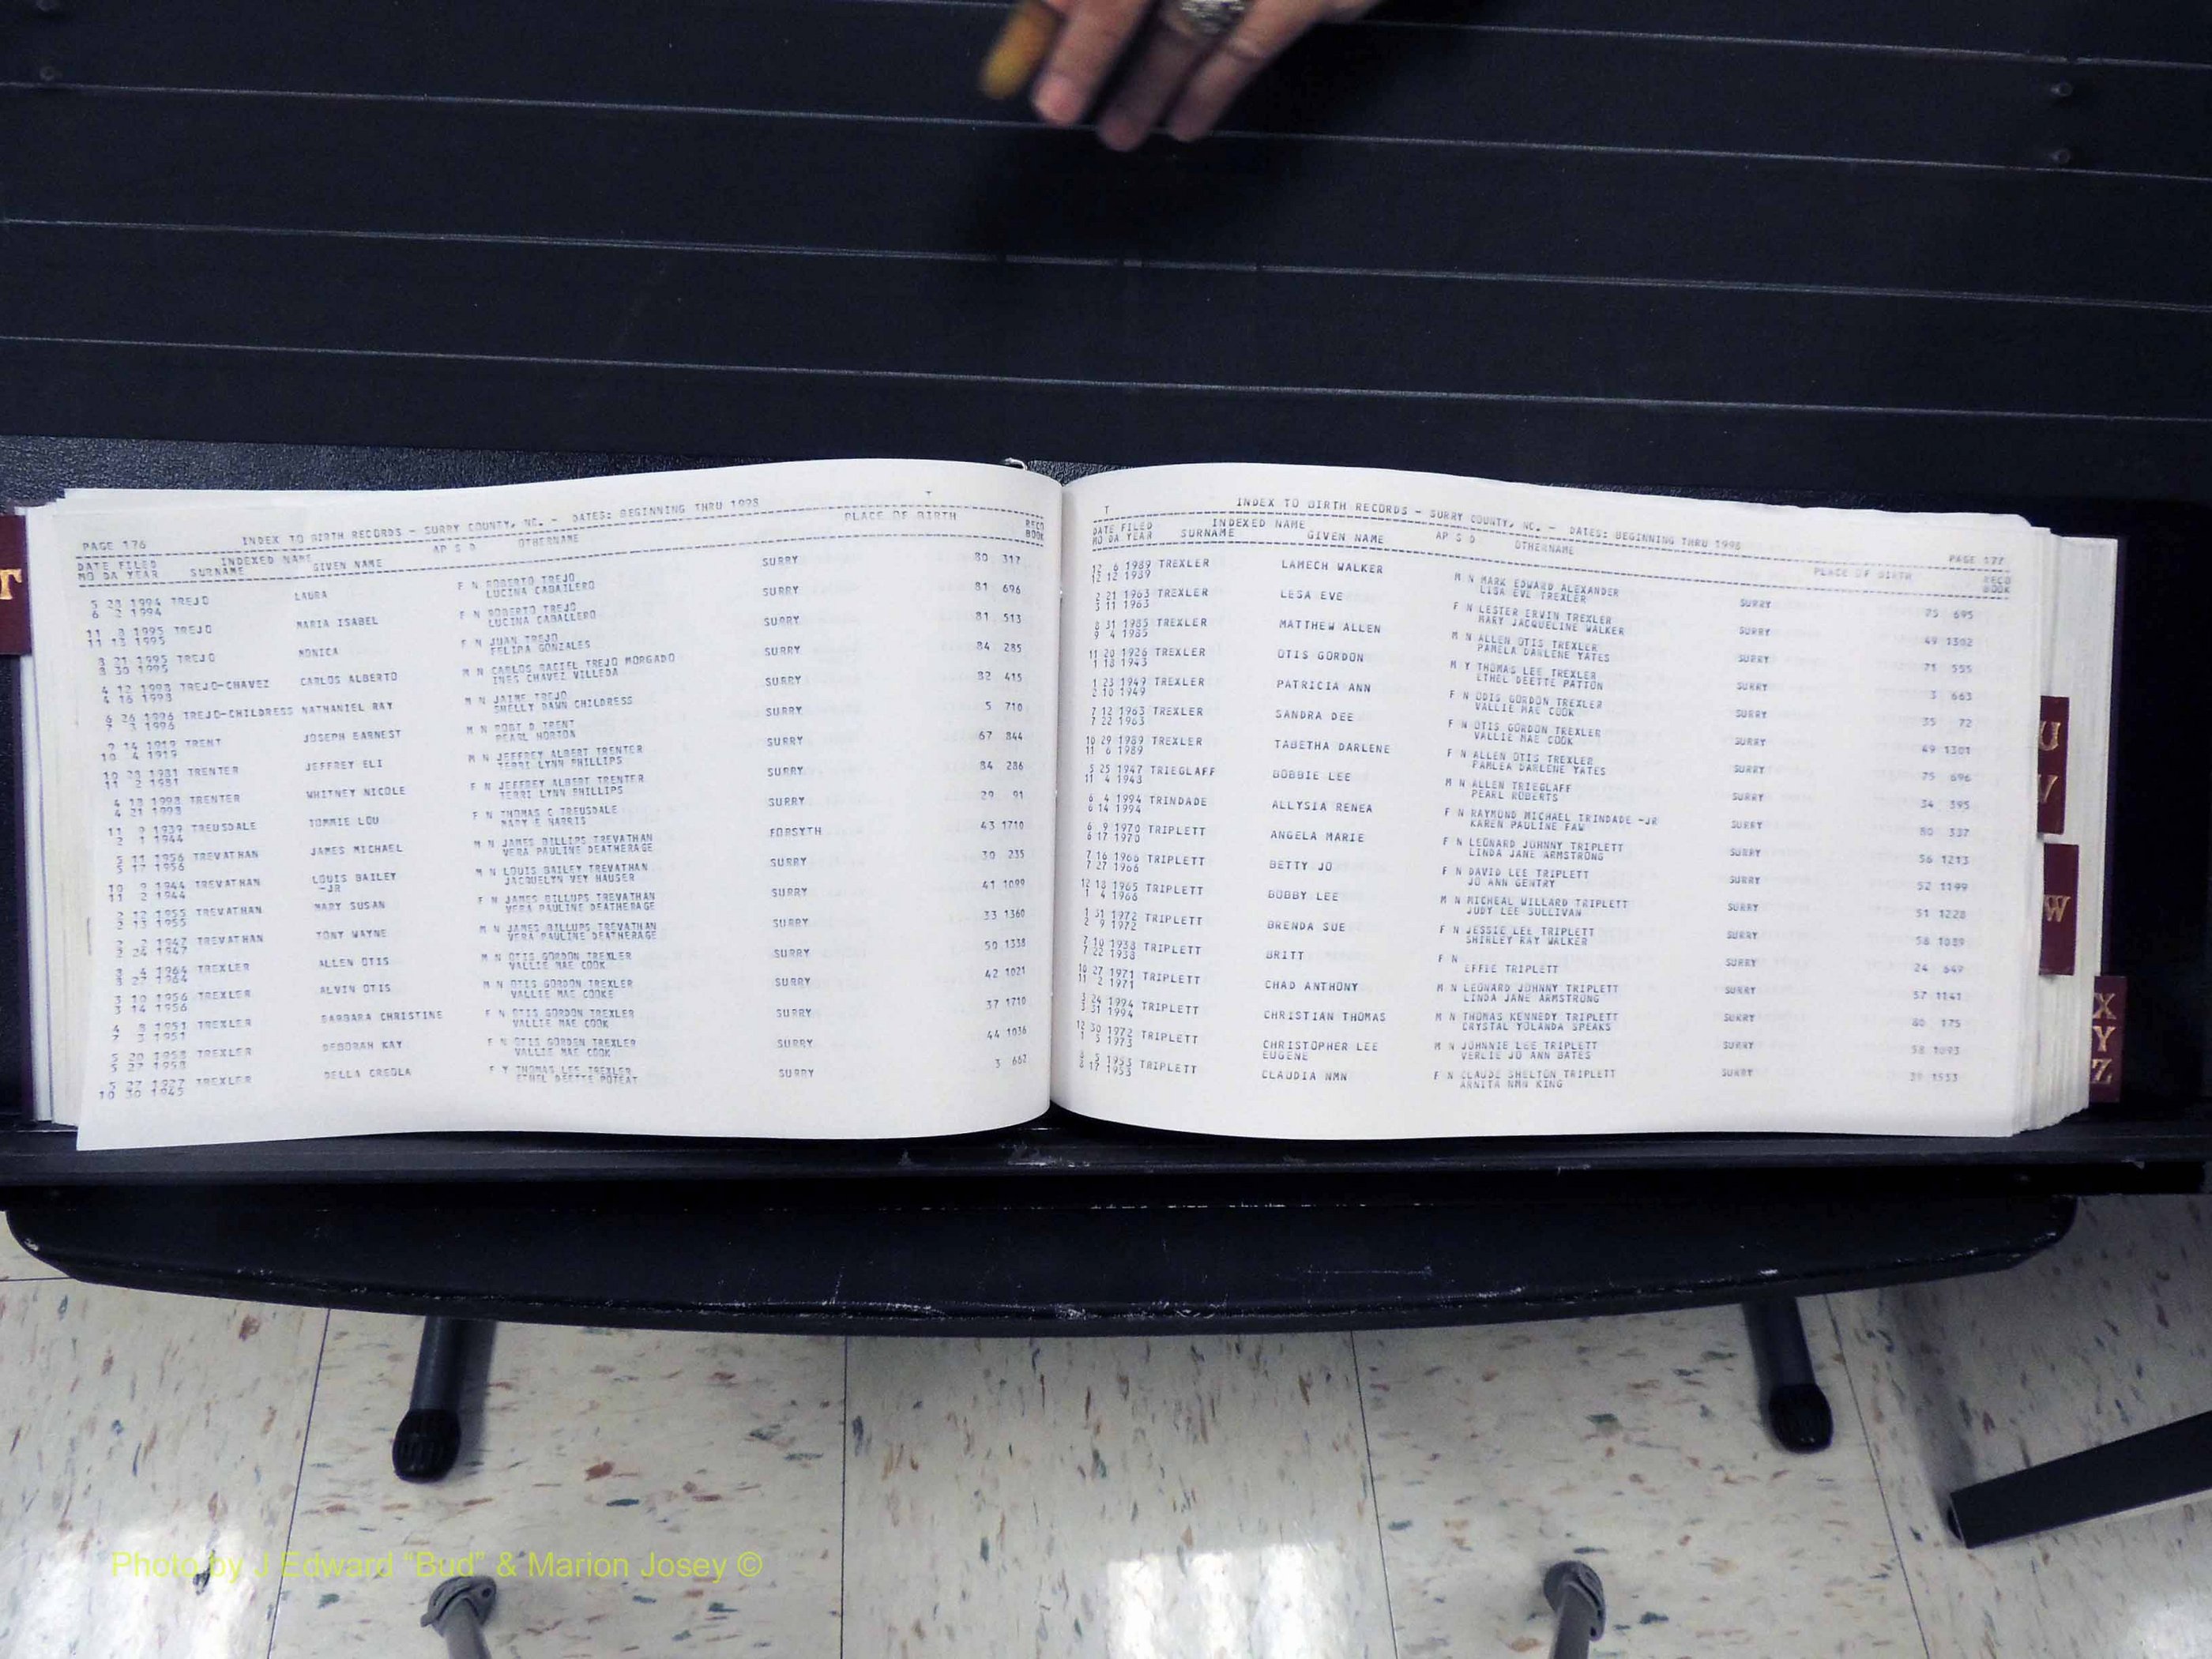 PAGE 176 INDEX TO BIRTH RECORDS - SURRY COUNTY, NC. - DATES: BEGINNING THRU 1998 T
DATE FILED INDEXED NAME AP S D OTHERNAME PLACE OF BIRTH RECO
MO DA YEAR SURNAME GIVEN NAME BOOK
5 28 1994 TREJO LAURA F N ROBERTO TREJO SURRY 80 317
6 2 1994 LUCINA CABALLERO
11 8 1995 TREJO MARIA ISABEL F N ROBERTO TREJO SURRY 81 696
11 13 1995 LUCINA CABALLERO
8 21 1995 TREJO MONICA F N JUAN TREJO SURRY 81 513
8 30 1995 FELIPA GONZALES
4 12 1998 TREJO-CHAVEZ CARLOS ALBERTO M N CARLOS TREJO MORGADO SURRY 84 285
4 16 1998 INES CHAVEZ VILLEDA
6 26 1996 TREJO-CHILDRESS NATHANIEL RAY M N JAIME TREJO SURRY 82 415
7 3 1996 SHELLY DAWN CHILDRESS
9 14 1919 TRENT JOSEPH EARNEST M N ROBT D TRENT SURRY 5 710
10 4 1919 PEARL HORTON
10 28 1981 TRENTER JEFFREY ELI M N JEFFREY ALBERT TRENTER SURRY 67 844
11 2 1981 TERRI LYNN PHILLIPS
4 18 1998 TRENTER WHITNEY NICOLE F N JEFFREY ALBERT TRENTER SURRY 84 286
4 21 1998 TERRI LYNN PHILLIPS
11 9 1939 TREUSDALE TOMMIE LOU F N THOMAS C TREUSDALE SURRY 29 91
2 1 1944 MARY E HARRIS
5 11 1956 TREVATHAN JAMES MICHAEL M N JAMES BILLIPS TREVATHAN FORSYTH 43 1710
5 17 1956 VERA PAULINE DEATHERAGE
10 9 1944 TREVATHAN LOUIS BAILEY M N LOUIS BAILEY TREVATHAN SURRY 30 235
11 2 1944 -JR JACQUELYN VEY HAUSER
2 12 1955 TREVATHAN MARY SUSAN F N JAMES BILLUPS TREVATHAN SURRY 41 1099
2 13 1955 VERA PAULINE DEATHERAGE
2 2 1947 TREVATHAN TONY WAYNE M N JAMES BILLUPS TREVATHAN SURRY 33 1360
2 24 1947 VERA PAULINE DEATHERAGE
8 4 1964 TREXLER ALLEN OTIS M N OTIS GORDON TREXLER SURRY 50 1338
8 27 1964 VALLIE MAE COOK
3 10 1956 TREXLER ALVIN OTIS M N OTIS GORDON TREXLER SURRY 42 1021
3 14 1956 VALLIE MAE COOKE
4 8 1951 TREXLER BARBARA CHRISTINE F N OTIS GORDON TREXLER SURRY 37 1710
7 3 1951 VALLIE MAE COOK
5 20 1958 TREXLER DEBORAH KAY F N OTIS GORDEN TREXLER SURRY 44 1036
5 27 1958 VALLIE MAE COOK
5 27 1927 TREXLER DELLA CREOLA F Y THOMAS LEE TREXLER SURRY 3 662
10 30 1945 ETHEL DEETTE POTEAT
T INDEX TO BIRTH RECORDS - SURRY COUNTY, NC. - DATES: BEGINNING THRU 1998 PAGE 177
DATE FILED INDEXED NAME AP S D OTHERNAME PLACE OF BIRTH RECO
MO DA YEAR SURNAME GIVEN NAME BOOK
12 6 1989 TREXLER LAMECH WALKER M N MARK EDWARD ALEXANDER SURRY 75 695
12 12 1989 LISA EVE TREXLER
2 21 1963 TREXLER LESA EVE F N LESTER ERVIN TREXLER SURRY 49 1302
3 11 1963 MARY JACQUELINE WALKER
8 31 1985 TREXLER MATTHEW ALLEN M N ALLEN OTIS TREXLER SURRY 71 555
9 4 1985 PAMELA DARLENE YATES
11 20 1926 TREXLER OTIS GORDON M Y THOMAS LEE TREXLER SURRY 3 663
1 18 1943 ETHEL DEETTE PATTON
1 23 1949 TREXLER PATRICIA ANN F N ODIS GORDON TREXLER SURRY 35 72
2 10 1949 VALLIE MAE COOK
7 12 1963 TREXLER SANDRA DEE F N OTIS GORDON TREXLER SURRY 49 1301
7 22 1963 VALLIE MAE COOK
10 29 1989 TREXLER TABETHA DARLENE F N ALLEN OTIS TREXLER SURRY 75 696
11 6 1989 PAMLEA DARLENE YATES
5 25 1947 TRIEGLAFF BOBBIE LEE M N ALLEN TRIEGLAFF SURRY 34 395
11 4 1948 PEARL ROBERTS
6 4 1994 TRINDADE ALLYSIA RENEA F N RAYMOND MICHAEL TRINDADE -JR SURRY 80 337
6 14 1994 KAREN PAULINE FAW
6 9 1970 TRIPLETT ANGELA MARIE F N LEONARD JOHNNY TRIPLETT SURRY 56 1213
6 17 1970 LINDA JANE ARMSTRONG
7 16 1966 TRIPLETT BETTY JO F N DAVID LEE TRIPLETT SURRY 52 1199
7 27 1966 JO ANN GENTRY
12 18 1965 TRIPLETT BOBBY LEE M N MICHEAL WILLARD TRIPLETT SURRY 51 1228
1 4 1966 JUDY LEE SULLIVAN
1 31 1972 TRIPLETT BRENDA SUE F N JESSIE LEE TRIPLETT SURRY 58 1089
2 9 1972 SHIRLEY RAY WALKER
7 10 1938 TRIPLETT BRITT F N SURRY 24 649
7 22 1938 EFFIE TRIPLETT
10 27 1971 TRIPLETT CHAD ANTHONY M N LEONARD JOHNNY TRIPLETT SURRY 57 1141
11 2 1971 LINDA JANE ARMSTRONG
3 24 1994 TRIPLETT CHRISTIAN THOMAS M N THOMAS KENNEDY TRIPLETT SURRY 80 175
3 31 1994 CRYSTAL YOLANDA SPEAKS
12 30 1972 TRIPLETT CHRISTOPHER LEE M N JOHNNIE LEE TRIPLETT SURRY 58 1093
1 5 1973 EUGENE VERLIE JO ANN BATES
8 5 1953 TRIPLETT CLAUDIA NMN F N CLAUDE SHELTON TRIPLETT SURRY 39 1553
8 17 1953 ARNITA NMN KING
T
U
V
W
X
Y
Z
Photo by J Edward “Bud” & Marion Josey ©